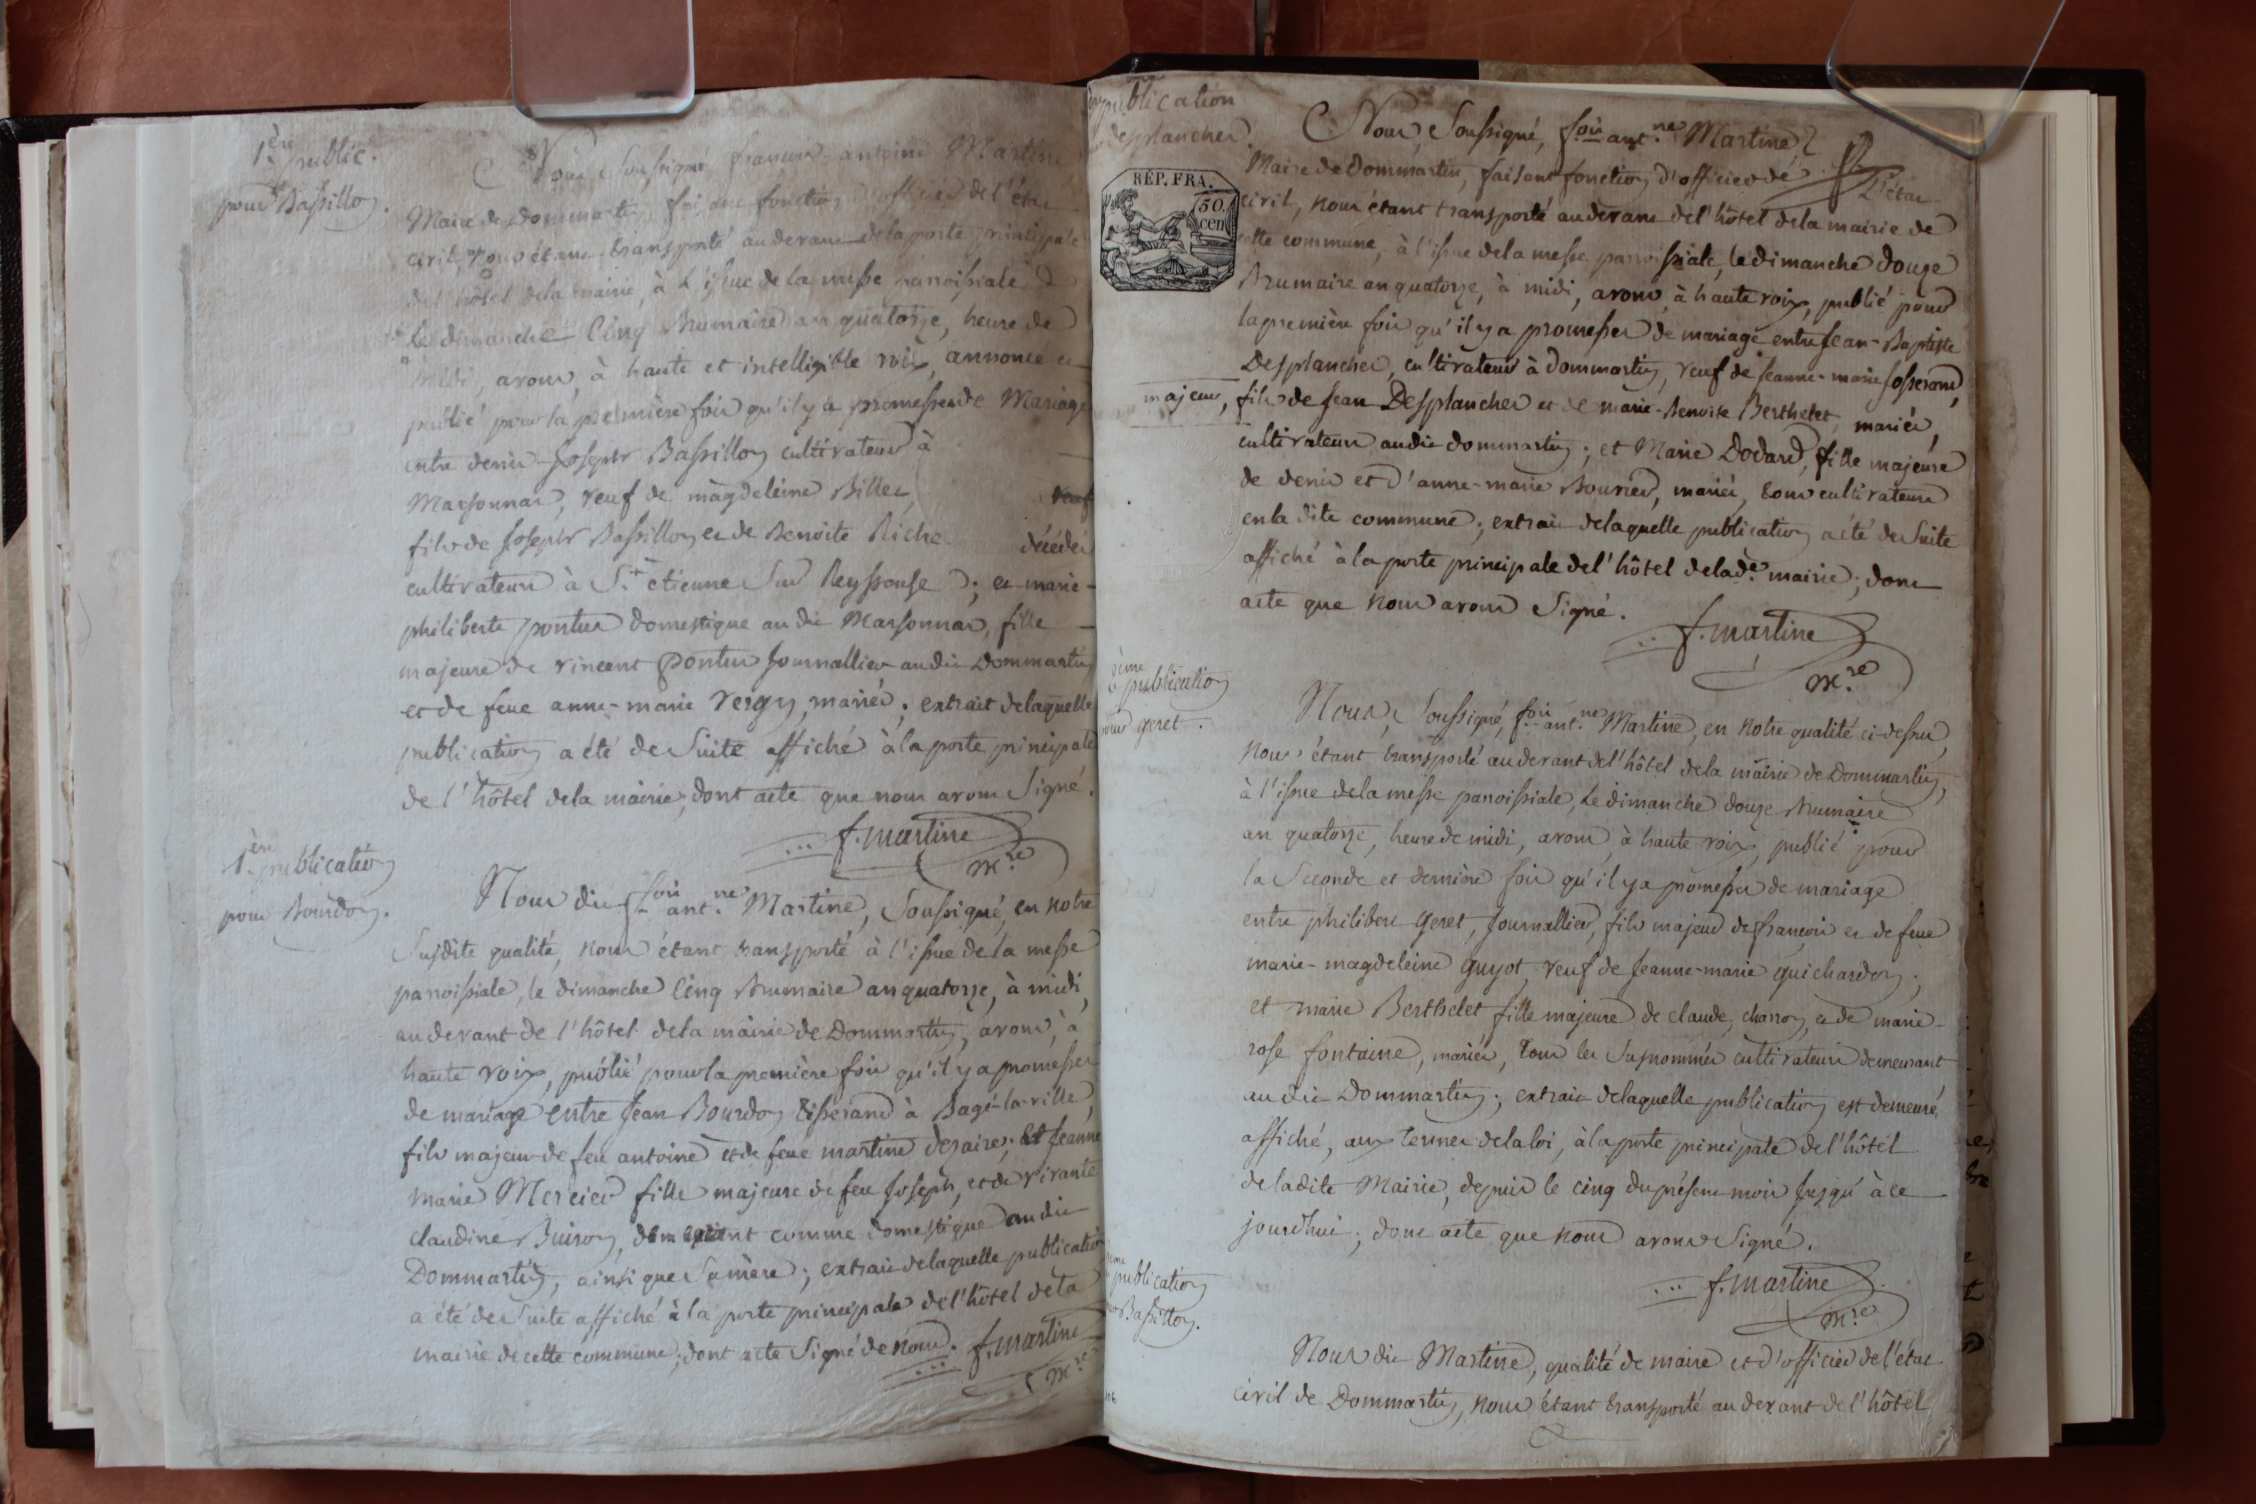 1.ère public.
pour Bassillon.
Nous Soussigné françois-antoine Martine
Maire de Dommartin, faisant fonction d'officier de l'état
civil, nous étant transporté au devant de la porte principale
de l'hôtel de la mairie, à l'issue de la messe paroissiale
le dimanche Cinq Brumaire an quatorze, heure de
midi, avons, à haute et intelligible voix, annoncé et
publié pour la première fois qu'il y a promesses de Mariage
entre denis-Joseph Bassillon cultivateur à
Marsonnas, veuf de magdeleine Billet,
fils de Joseph Bassillon et de Benoite Riche décédés
cultivateurs à S.t étienne Sur Reyssouse; et marie-
philiberte pontus domestique au dit Marsonnas, fille
majeure de vincent pontus Journallier au dit Dommartin
et de feue anne-marie vergy, mariés; extrait de laquelle
publication a été de Suite affiché à la porte principale
de l'hôtel de la mairie, dont acte que nous avons Signé.
f. martine
m.re
1.ère publication
pour Bourdon.
Nous dit f.ois ant.ne Martine, Soussigné, en notre
Susdite qualité, nous étant transporté à l'issue de la messe
paroissiale, le dimanche Cinq Brumaire an quatorze, à midi,
au devant de l'hôtel de la mairie de Dommartin, avons, à
haute voix, publié pour la première fois qu'il y a promesses
de mariage entre Jean Bourdon tisserand à Bagé-la-ville,
fils majeur de feu antoine et de feue martine desaires, Et Jeanne
marie Mercier fille majeure de feu Joseph, et de vivante
claudine Buiron, demeurant comme domestique au dit
Dommartin, ainsi que Sa mère; extrait de laquelle publication
a été de Suite affiché à la porte principale de l'hôtel de la
mairie de cette commune; dont acte Signé de nous. f. martine
m.re
publication
desplanches.
RÉP. FRA.
50
cen
Nous, Soussigné, f.ois ant.ne Martine,
Maire de Dommartin, faisant fonction d'officier de L'état
civil, nous étant transporté au devant de l'hôtel de la mairie de
cette commune, à l'issue de la messe paroissiale, le dimanche douze
Brumaire an quatorze, à midi, avons, à haute voix, publié pour
la première fois qu'il y a promesses de mariage entre Jean-Baptiste
Desplanches, cultivateur à Dommartin, veuf de Jeanne-marie Josserand,
majeur, fils de Jean Desplanches et de marie-Benoite Berthelet, mariés,
cultivateurs au dit dommartin; et Marie Dodard, fille majeure
de denis et d'anne-marie Bourier, mariés, tous cultivateurs
en la dite commune; extrait de laquelle publication a été de Suite
affiché à la porte principale de l'hôtel de lad.e mairie; dont
acte que Nous avons Signé.
f. martine
m.re
publication
pour geret.
Nous, Soussigné, f.ois ant.ne Martine, en notre qualité ci-dessus,
nous étant transporté au devant de l'hôtel de la mairie de Dommartin,
à l'issue de la messe paroissiale, Le dimanche douze Brumaire
an quatorze, heure de midi, avons, à haute voix, publié pour
la Seconde et dernière fois qu'il y a promesses de mariage
entre philibert Geret, Journallier, fils majeur de françois et de feue
marie-magdeleine guyot, veuf de Jeanne-marie guichardon;
et marie Berthelet fille majeure de claude, charron, et de marie-
rose fontaine, mariés, tous les Susnommés cultivateurs demeurant
au dit Dommartin; extrait de laquelle publication est demeuré
affiché, aux termes de la loi, à la porte principale de l'hôtel
de ladite Mairie, depuis le cinq du présent mois Jusqu'à ce
jourd'hui; dont acte que nous avons Signé.
f. martine
m.re
publication
Bassillon.
Nous dit Martine, qualité de maire et d'officier de l'état
civil de Dommartin, nous étant transporté au devant de l'hôtel